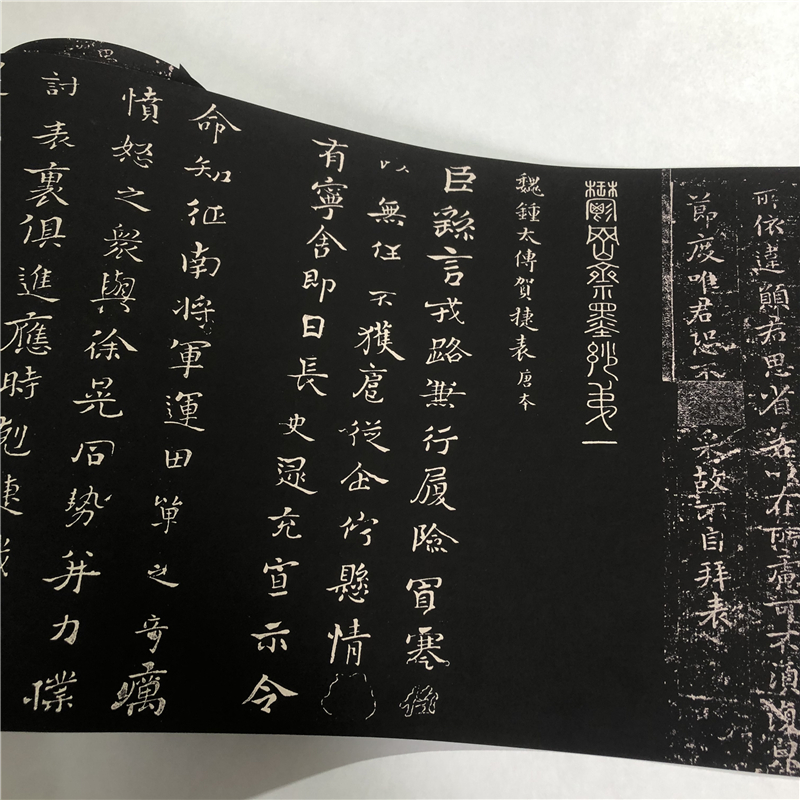 所依違願君思省若以在所慮可不須復皃
節度唯君恐不
采故可自拜表
鬱岡齋墨妙第一
魏鍾太傅賀捷表 唐本
臣繇言戎路兼行履險冒寒
以無任不獲扈從企佇懸情
有寧舍即日長史逯充宣示令
命知征南將軍運田單之奇厲
憤怒之衆與徐晃同勢并力
討表裏俱進應時剋捷